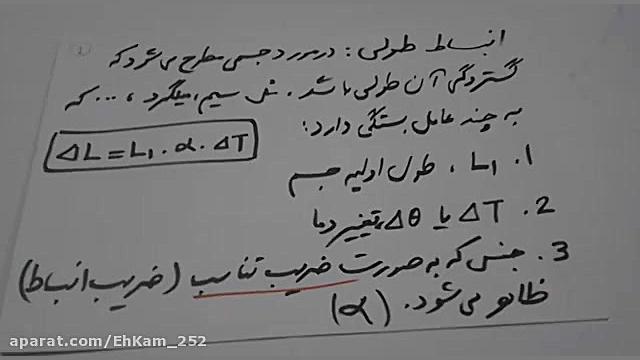 انبساط طولی: در مورد جسمی مطرح می شود که
گستردگی آن طولی باشد. مثل سیم، میلگرد، ... که
به چند عامل بستگی دارد:
ΔL = L₁ . α . ΔT
1. L₁ ، طول اولیه جسم
2. ΔT یا Δθ، تغییر دما
3. جنس که به صورت ضریب تناسب (ضریب انبساط)
ظاهر می شود. (α)
aparat.com/EhKam_252